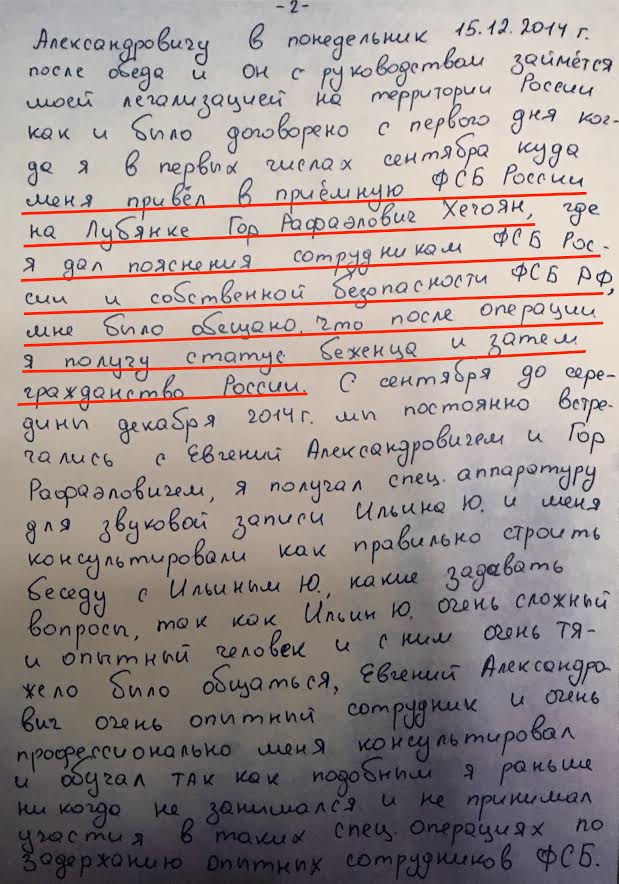 -2-
Александровичу в понедельник 15.12.2014 г.
после обеда и он с руководством займётся
моей легализацией на территории России
как и было договорено с первого дня ког-
да я в первых числах сентября куда
меня привёл в приёмную ФСБ России
на Лубянке Гор Рафаэлович Хечоян, где
я дал пояснения сотрудникам ФСБ Рос-
сии и собственной безопасности ФСБ РФ,
мне было обещано, что после операции
я получу статус беженца и затем
гражданство России. С сентября до сере-
дины декабря 2014г. мы постоянно встре-
чались с Евгений Александровичем и Гор
Рафаэловичем, я получал спец. аппаратуру
для звуковой записи Ильина Ю. и меня
консультировали как правильно строить
беседу с Ильиным Ю., какие задавать
вопросы, так как Ильин Ю. очень сложный
и опытный человек и с ним очень тя-
жело было общаться, Евгений Александро-
вич очень опытный сотрудник и очень
профессионально меня консультировал
и обучал так как подобным я раньше
никогда не занимался и не принимал
участия в таких спец. операциях по
задержанию опытных сотрудников ФСБ.